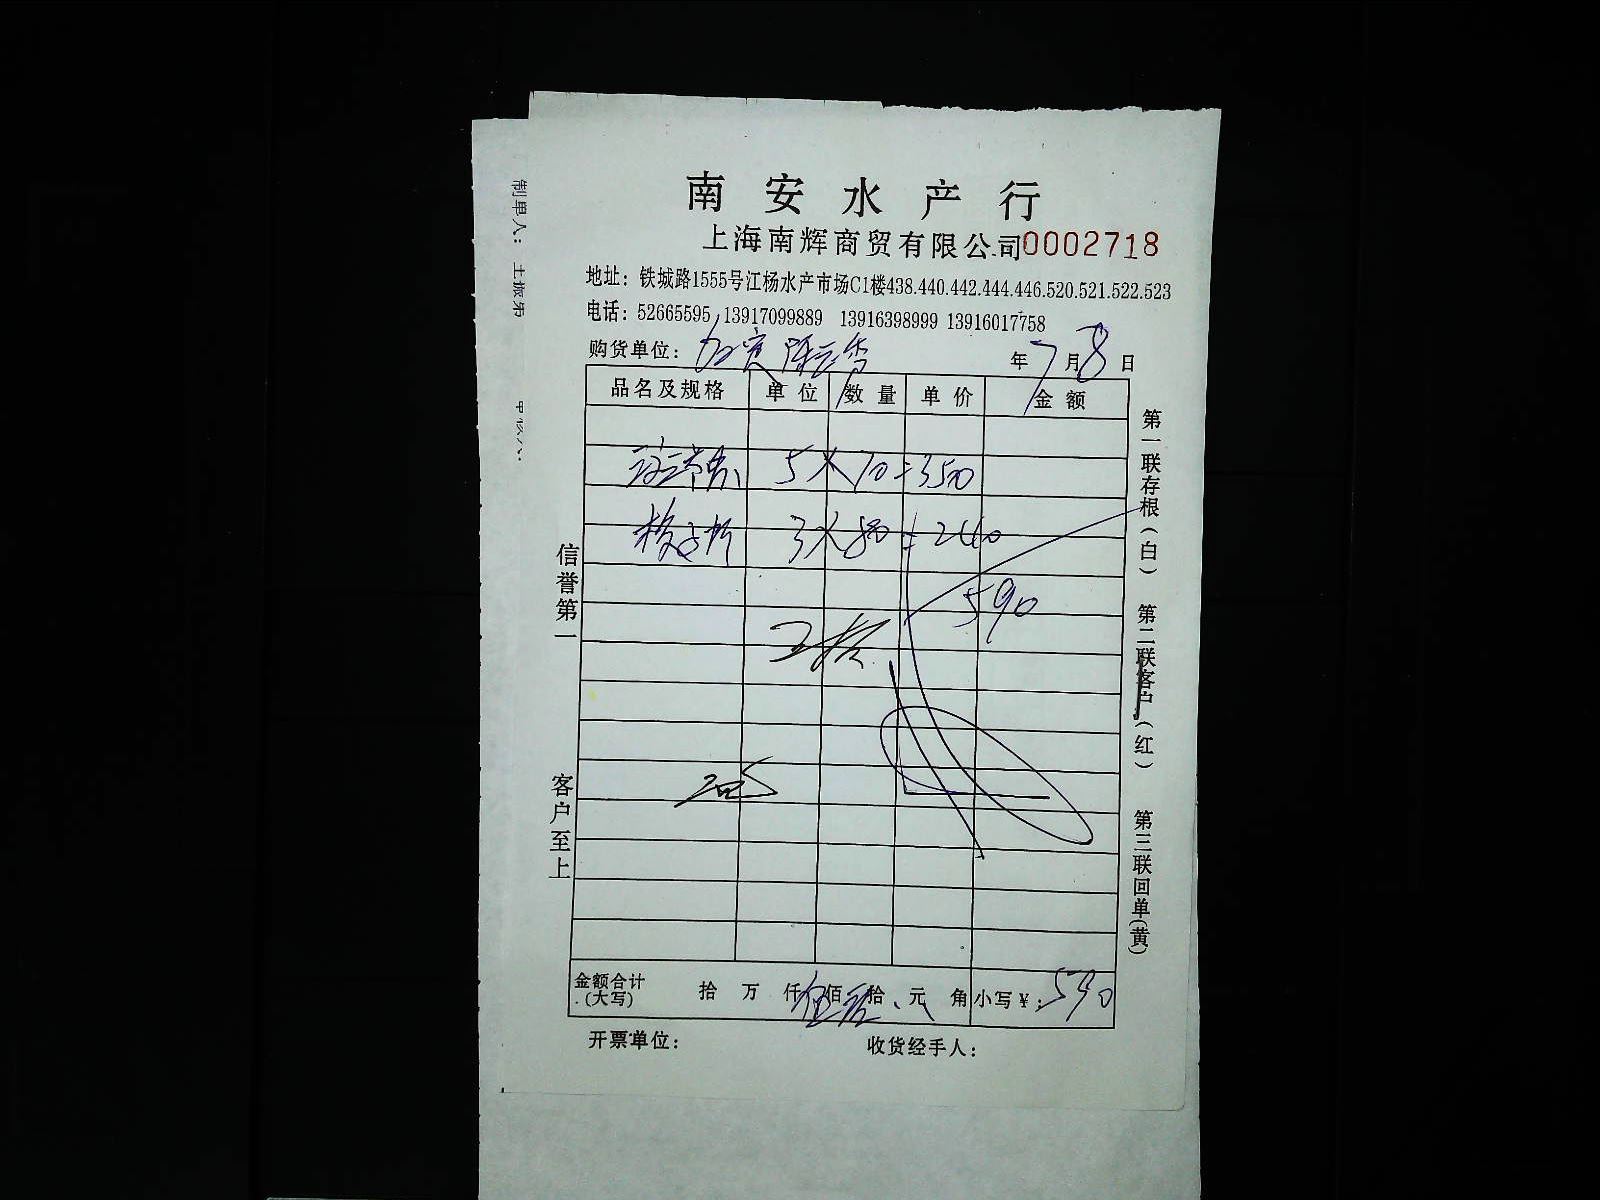 南安水产行
上海南辉商贸有限公司0002718
地址：铁城路1555号江杨水产市场C1楼438.440.442.444.446.520.521.522.523
电话：52665595 13917099889 13916398999 13916017758
购货单位：
年7月8日
品名及规格 单位 数量 单价 金额
5×70=350
3×80=240
590
金额合计(大写) 拾 万 仟 佰 拾 元 角 小写￥：590
开票单位： 收货经手人：
信誉第一 客户至上
第一联存根(白) 第二联客户(红) 第三联回单(黄)
制单人：